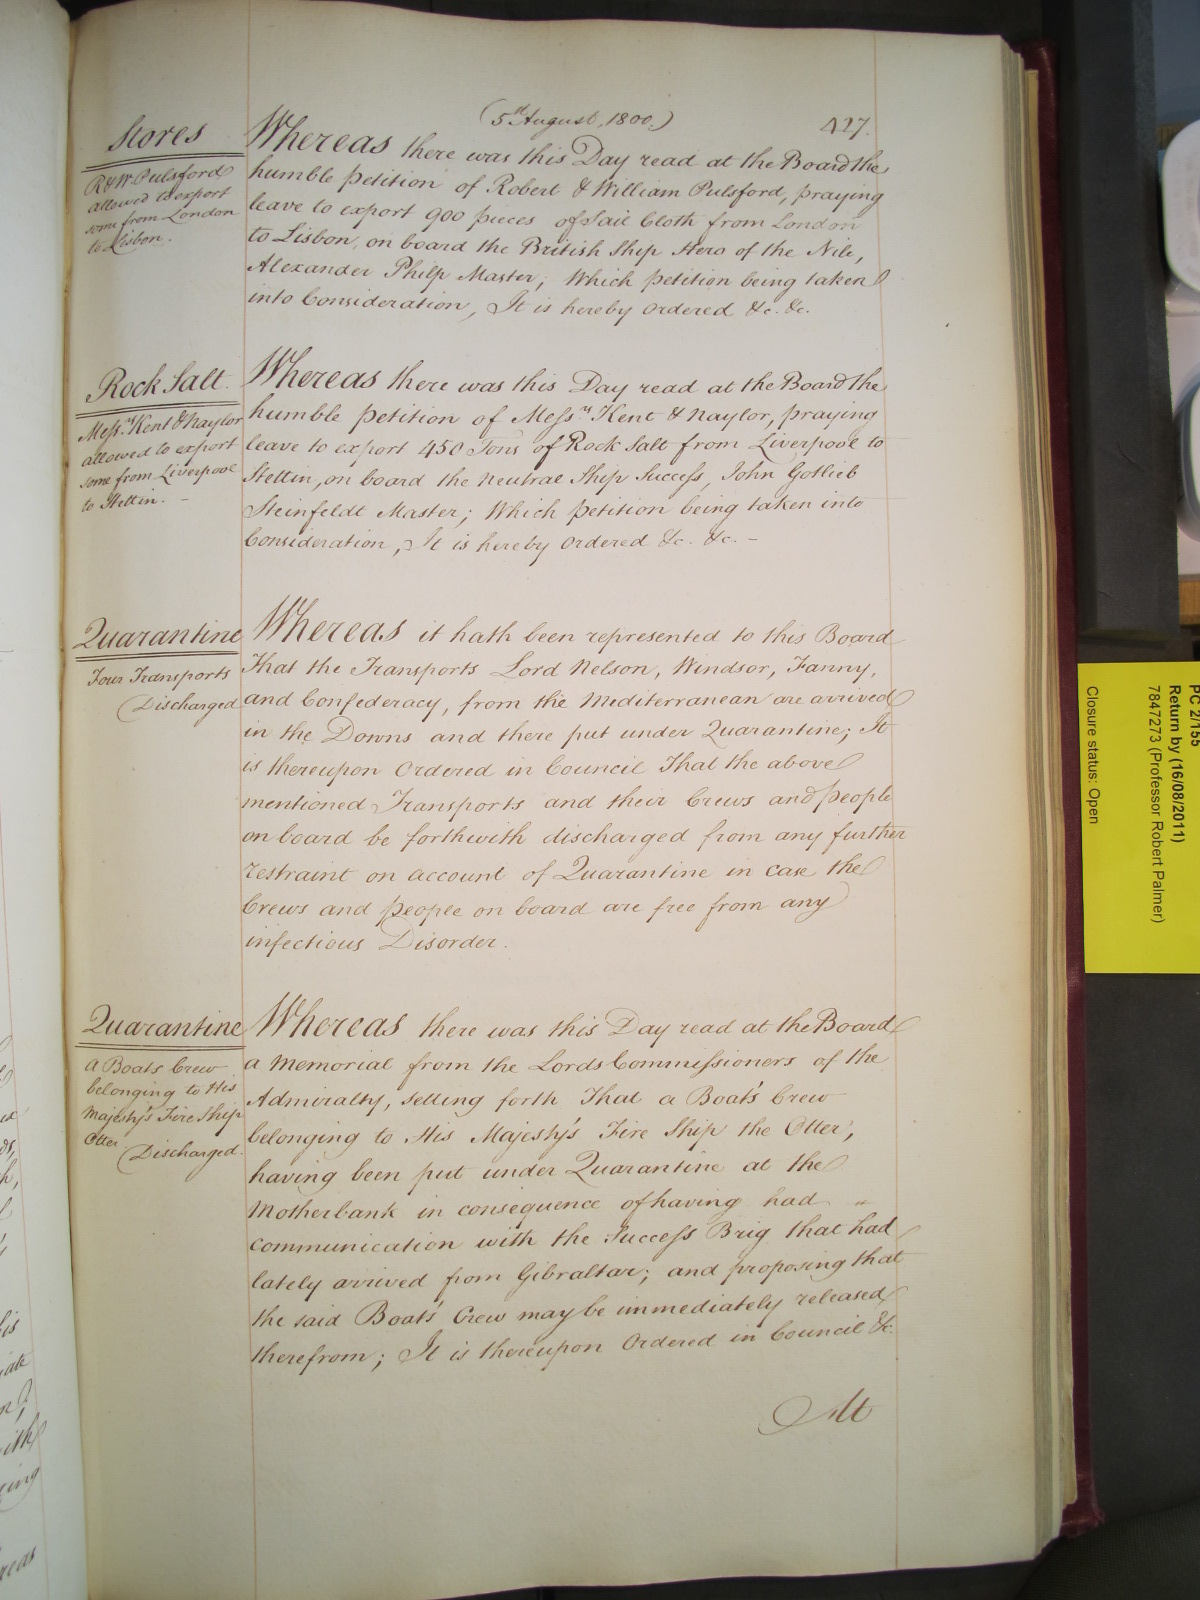 (5th August, 1800.)
427.
Stores
R & W. Pulsford
allowed to export
some from London
to Lisbon.
Whereas there was this Day read at the Board the
humble petition of Robert & William Pulsford, praying
leave to export 900 pieces of Sail Cloth from London
to Lisbon, on board the British Ship Hero of the Nile,
Alexander Philp Master; Which petition being taken
into Consideration, It is hereby Ordered &c. &c.
Rock Salt.
Messrs. Kent & Naylor
allowed to export
some from Liverpool
to Stettin. –
Whereas there was this Day read at the Board the
humble petition of Messrs Kent & Naylor, praying
leave to export 450 Tons of Rock Salt from Liverpool to
Stettin, on board the Neutral Ship Success, John Gotlieb
Steinfeldt Master; Which petition being taken into
Consideration, It is hereby Ordered &c. &c. –
Quarantine
Four Transports
Discharged
Whereas it hath been represented to this Board
That the Transports Lord Nelson, Windsor, Fanny,
and Confederacy, from the Mediterranean are arrived
in the Downs and there put under Quarantine; It
is thereupon Ordered in Council That the above
mentioned Transports and their Crews and people
on board be forthwith discharged from any further
restraint on account of Quarantine in case the
Crews and people on board are free from any
infectious Disorder.
Quarantine
a Boats Crew
belonging to His
Majesty's Fire Ship
Otter
Discharged.
Whereas there was this Day read at the Board
a Memorial from the Lords Commissioners of the
Admiralty, setting forth That a Boat's Crew
belonging to His Majesty's Fire Ship the Otter,
having been put under Quarantine at the
Motherbank in consequence of having had
communication with the Success Brig that had
lately arrived from Gibraltar; and proposing that
the said Boat's Crew may be immediately released
therefrom; It is thereupon Ordered in Council &c.
At
PC 2/155
Return by (16/08/2011)
7847273 (Professor Robert Palmer)
Closure status: Open